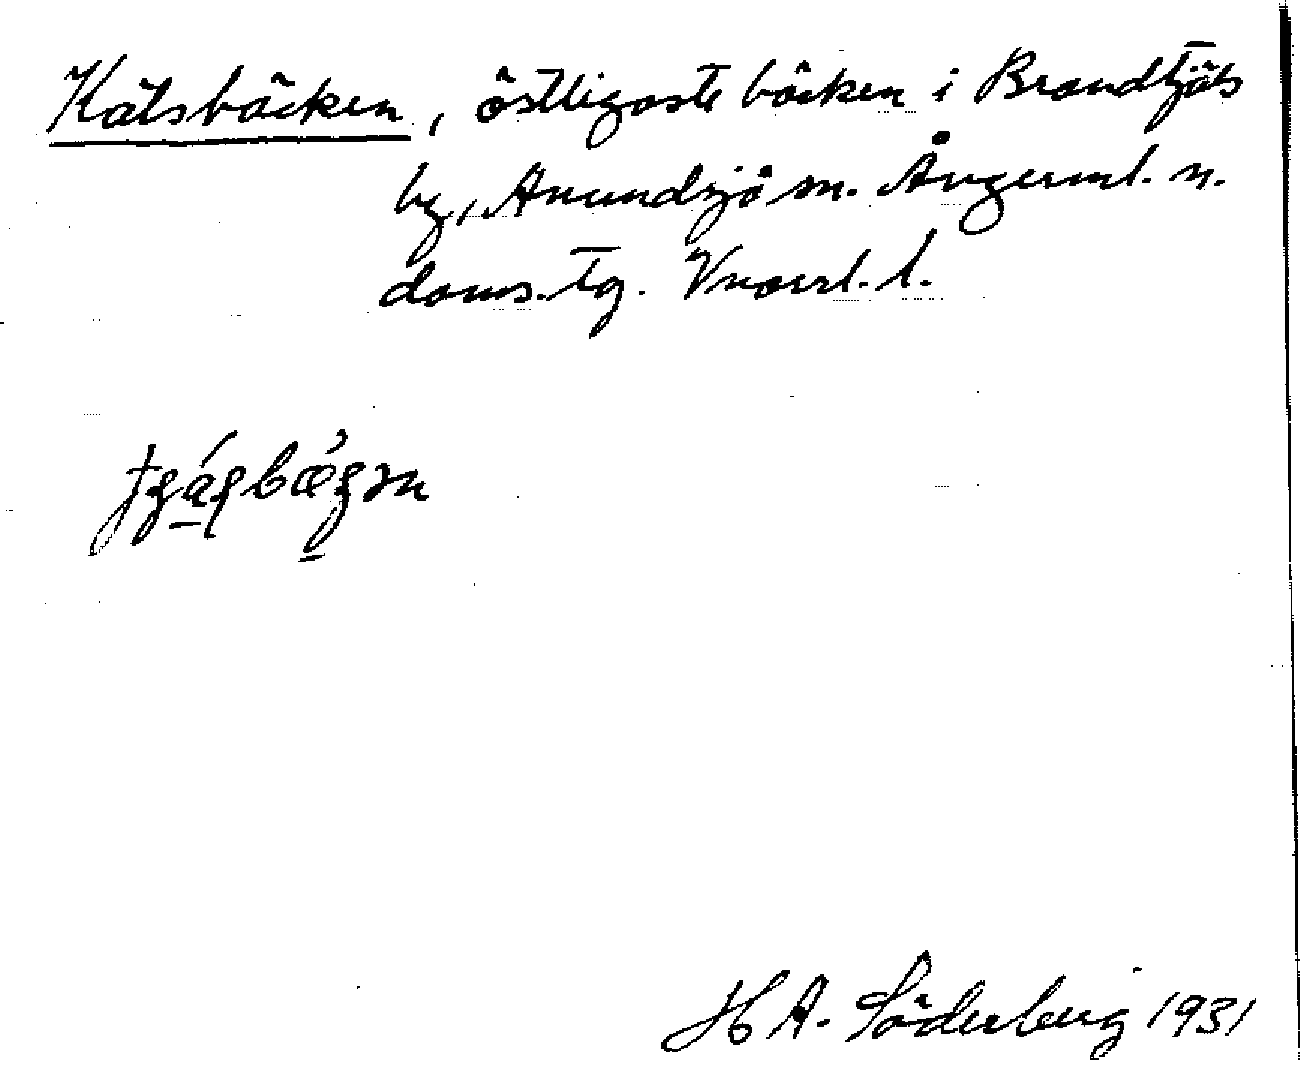 Kälsbäcken, östligaste bäcken i Brandtjäls
by, Anundsjö sn. Ångerml. n.
doms.tg. Vnorrl. l.
H A. Söderberg 1931